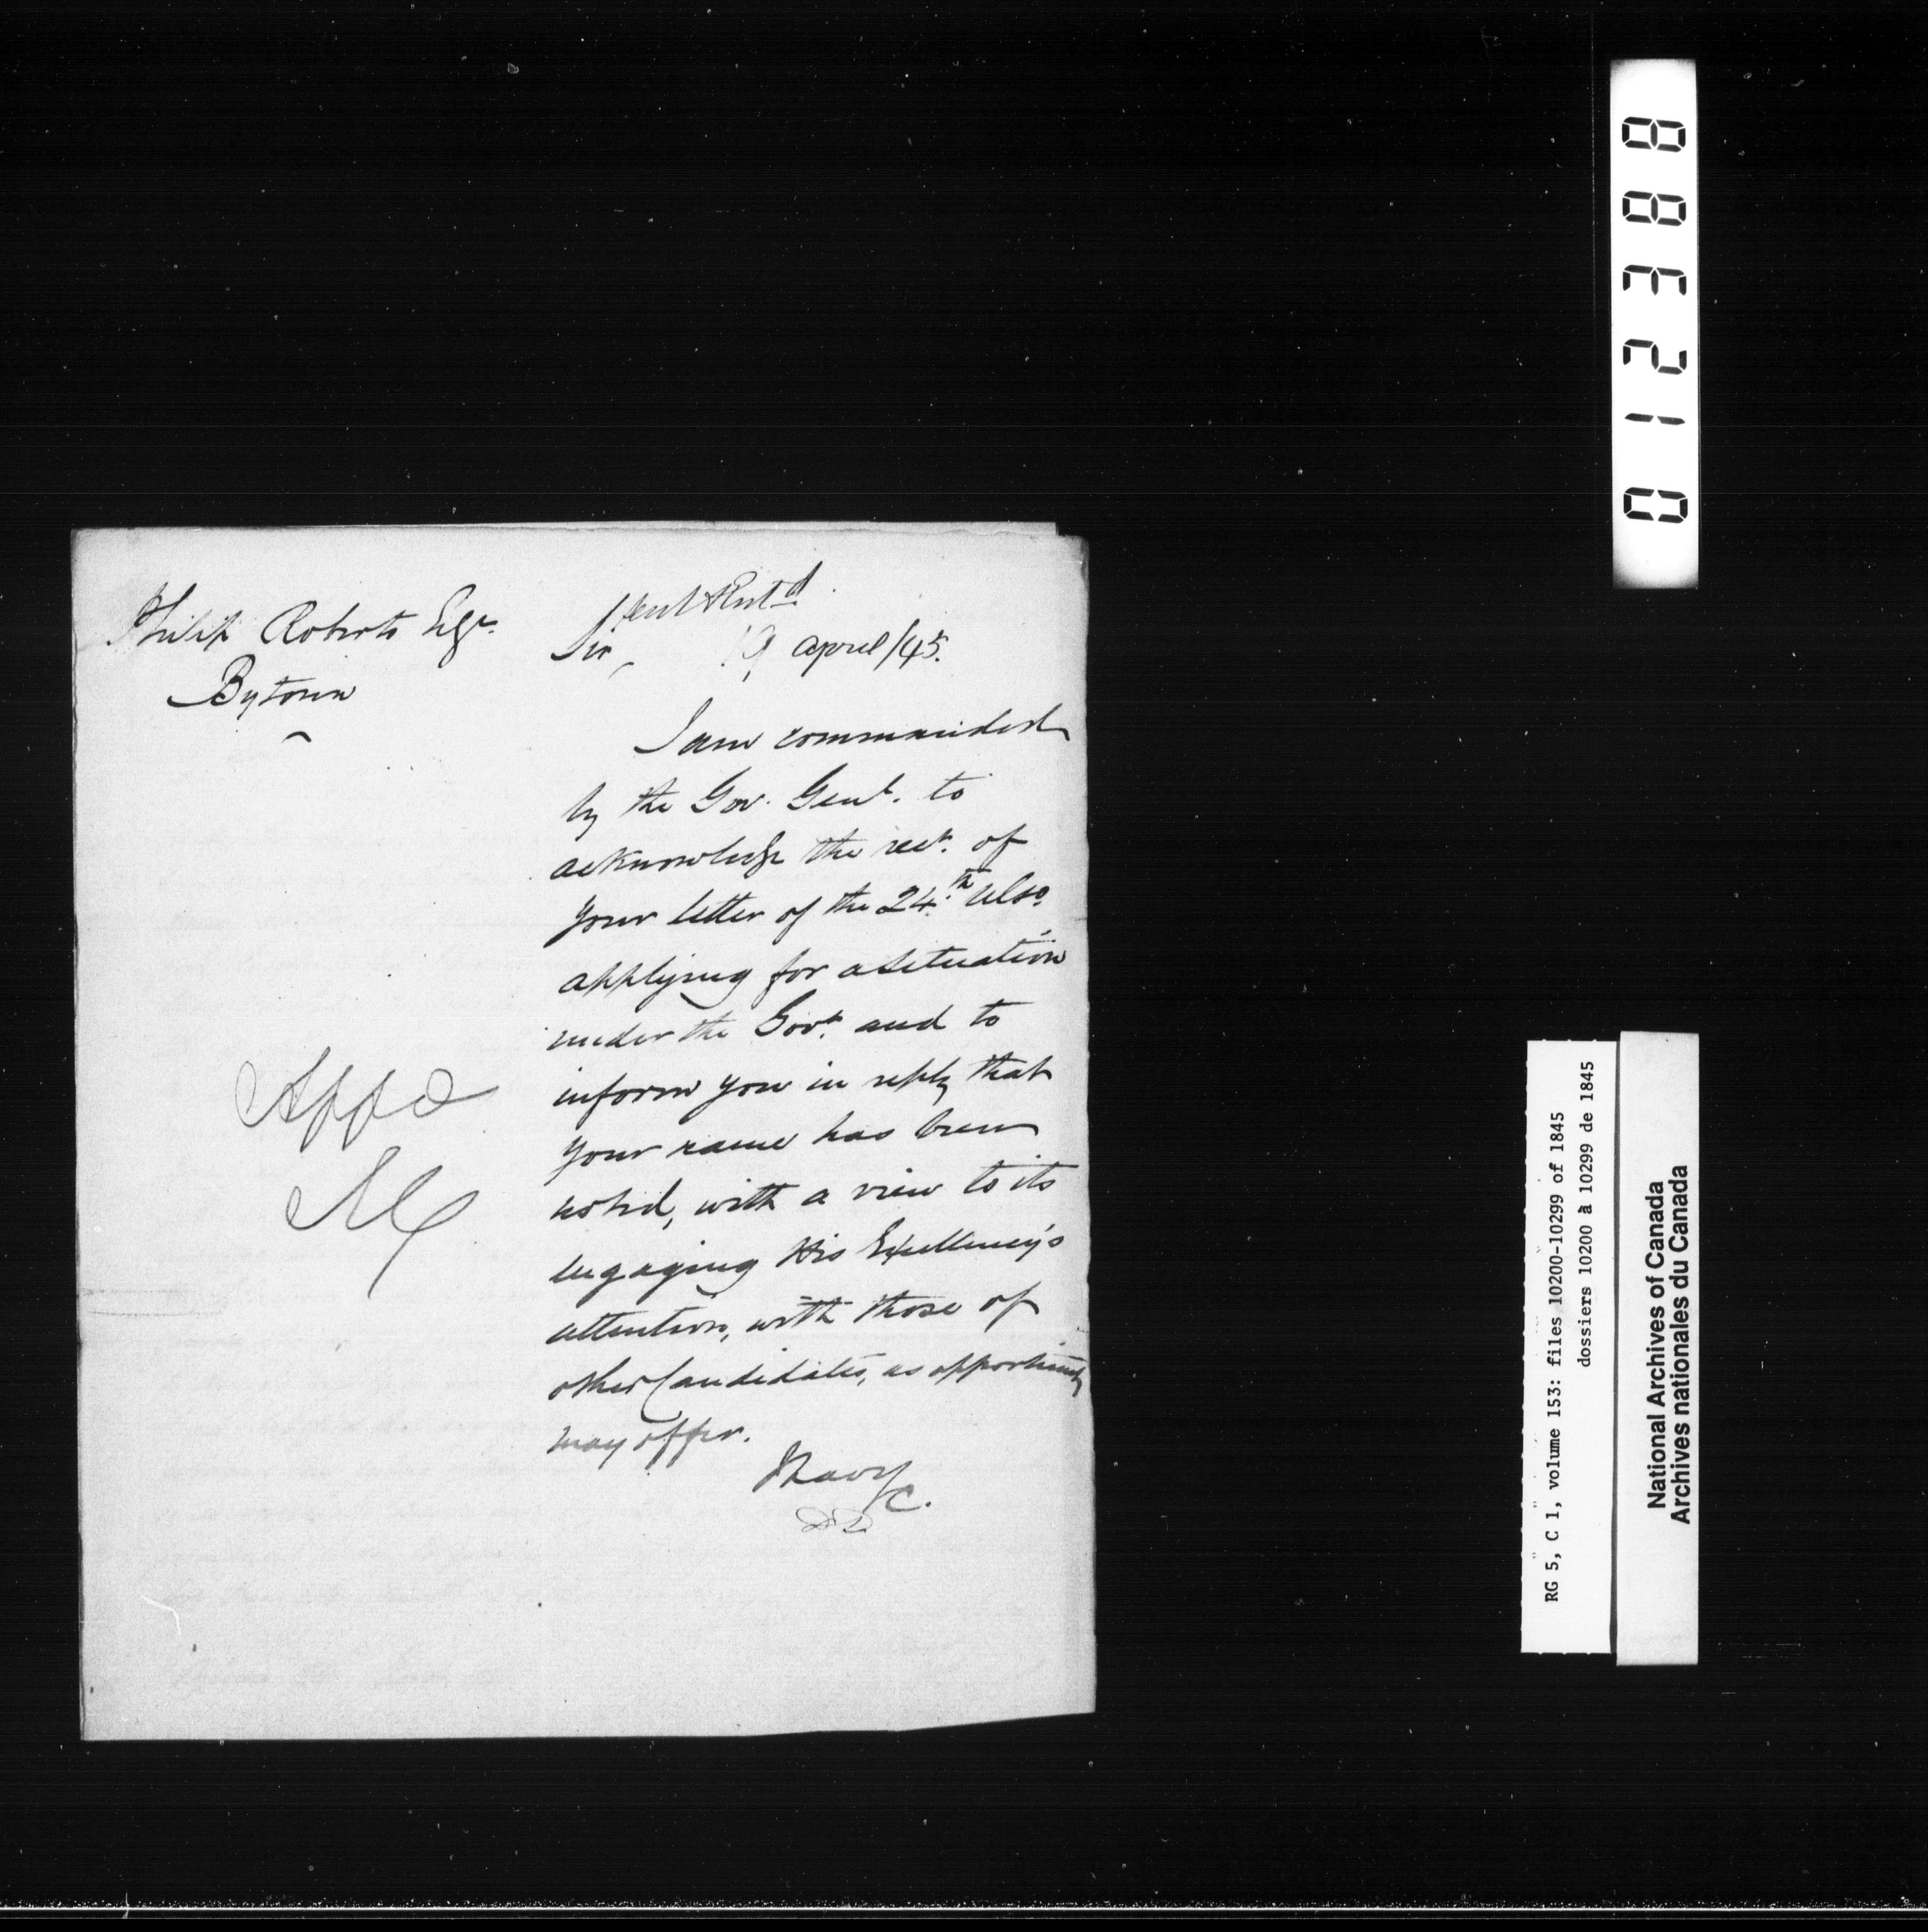 Philip Roberts Esqr.
Bytown
Sent & Entd.
Sir, 19 April/45.
I am commanded
by the Gov. Genl. to
acknowledge the rect. of
your letter of the 24.th Ulto.
applying for a situation
under the Govt. and to
inform you in reply that
your name has been
noted, with a view to its
engaging His Excellency's
attention, with those of
other Candidates, as opportunity
may offer.
I have &c.
DD
Appd
012388
RG 5, C 1, volume 153: files 10200-10299 of 1845
dossiers 10200 à 10299 de 1845
National Archives of Canada
Archives nationales du Canada